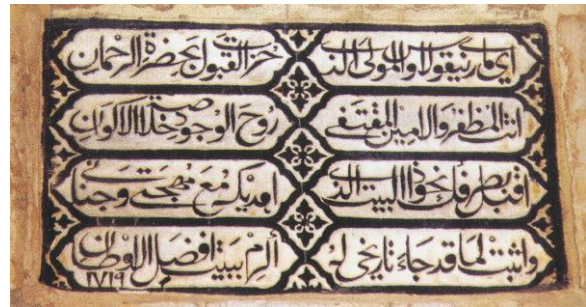 والمولى الذي حزت القبول بحضرة الرحمان
انت المظفر والامين المقتفى روح الوجود خلاصة الاكوان
نحو ذا البيت الذي افديك مع مهجتي وجناني
واثبت لما قد جاء تاريخي له الزم ببيت افضل الاوطان
١٧١٩